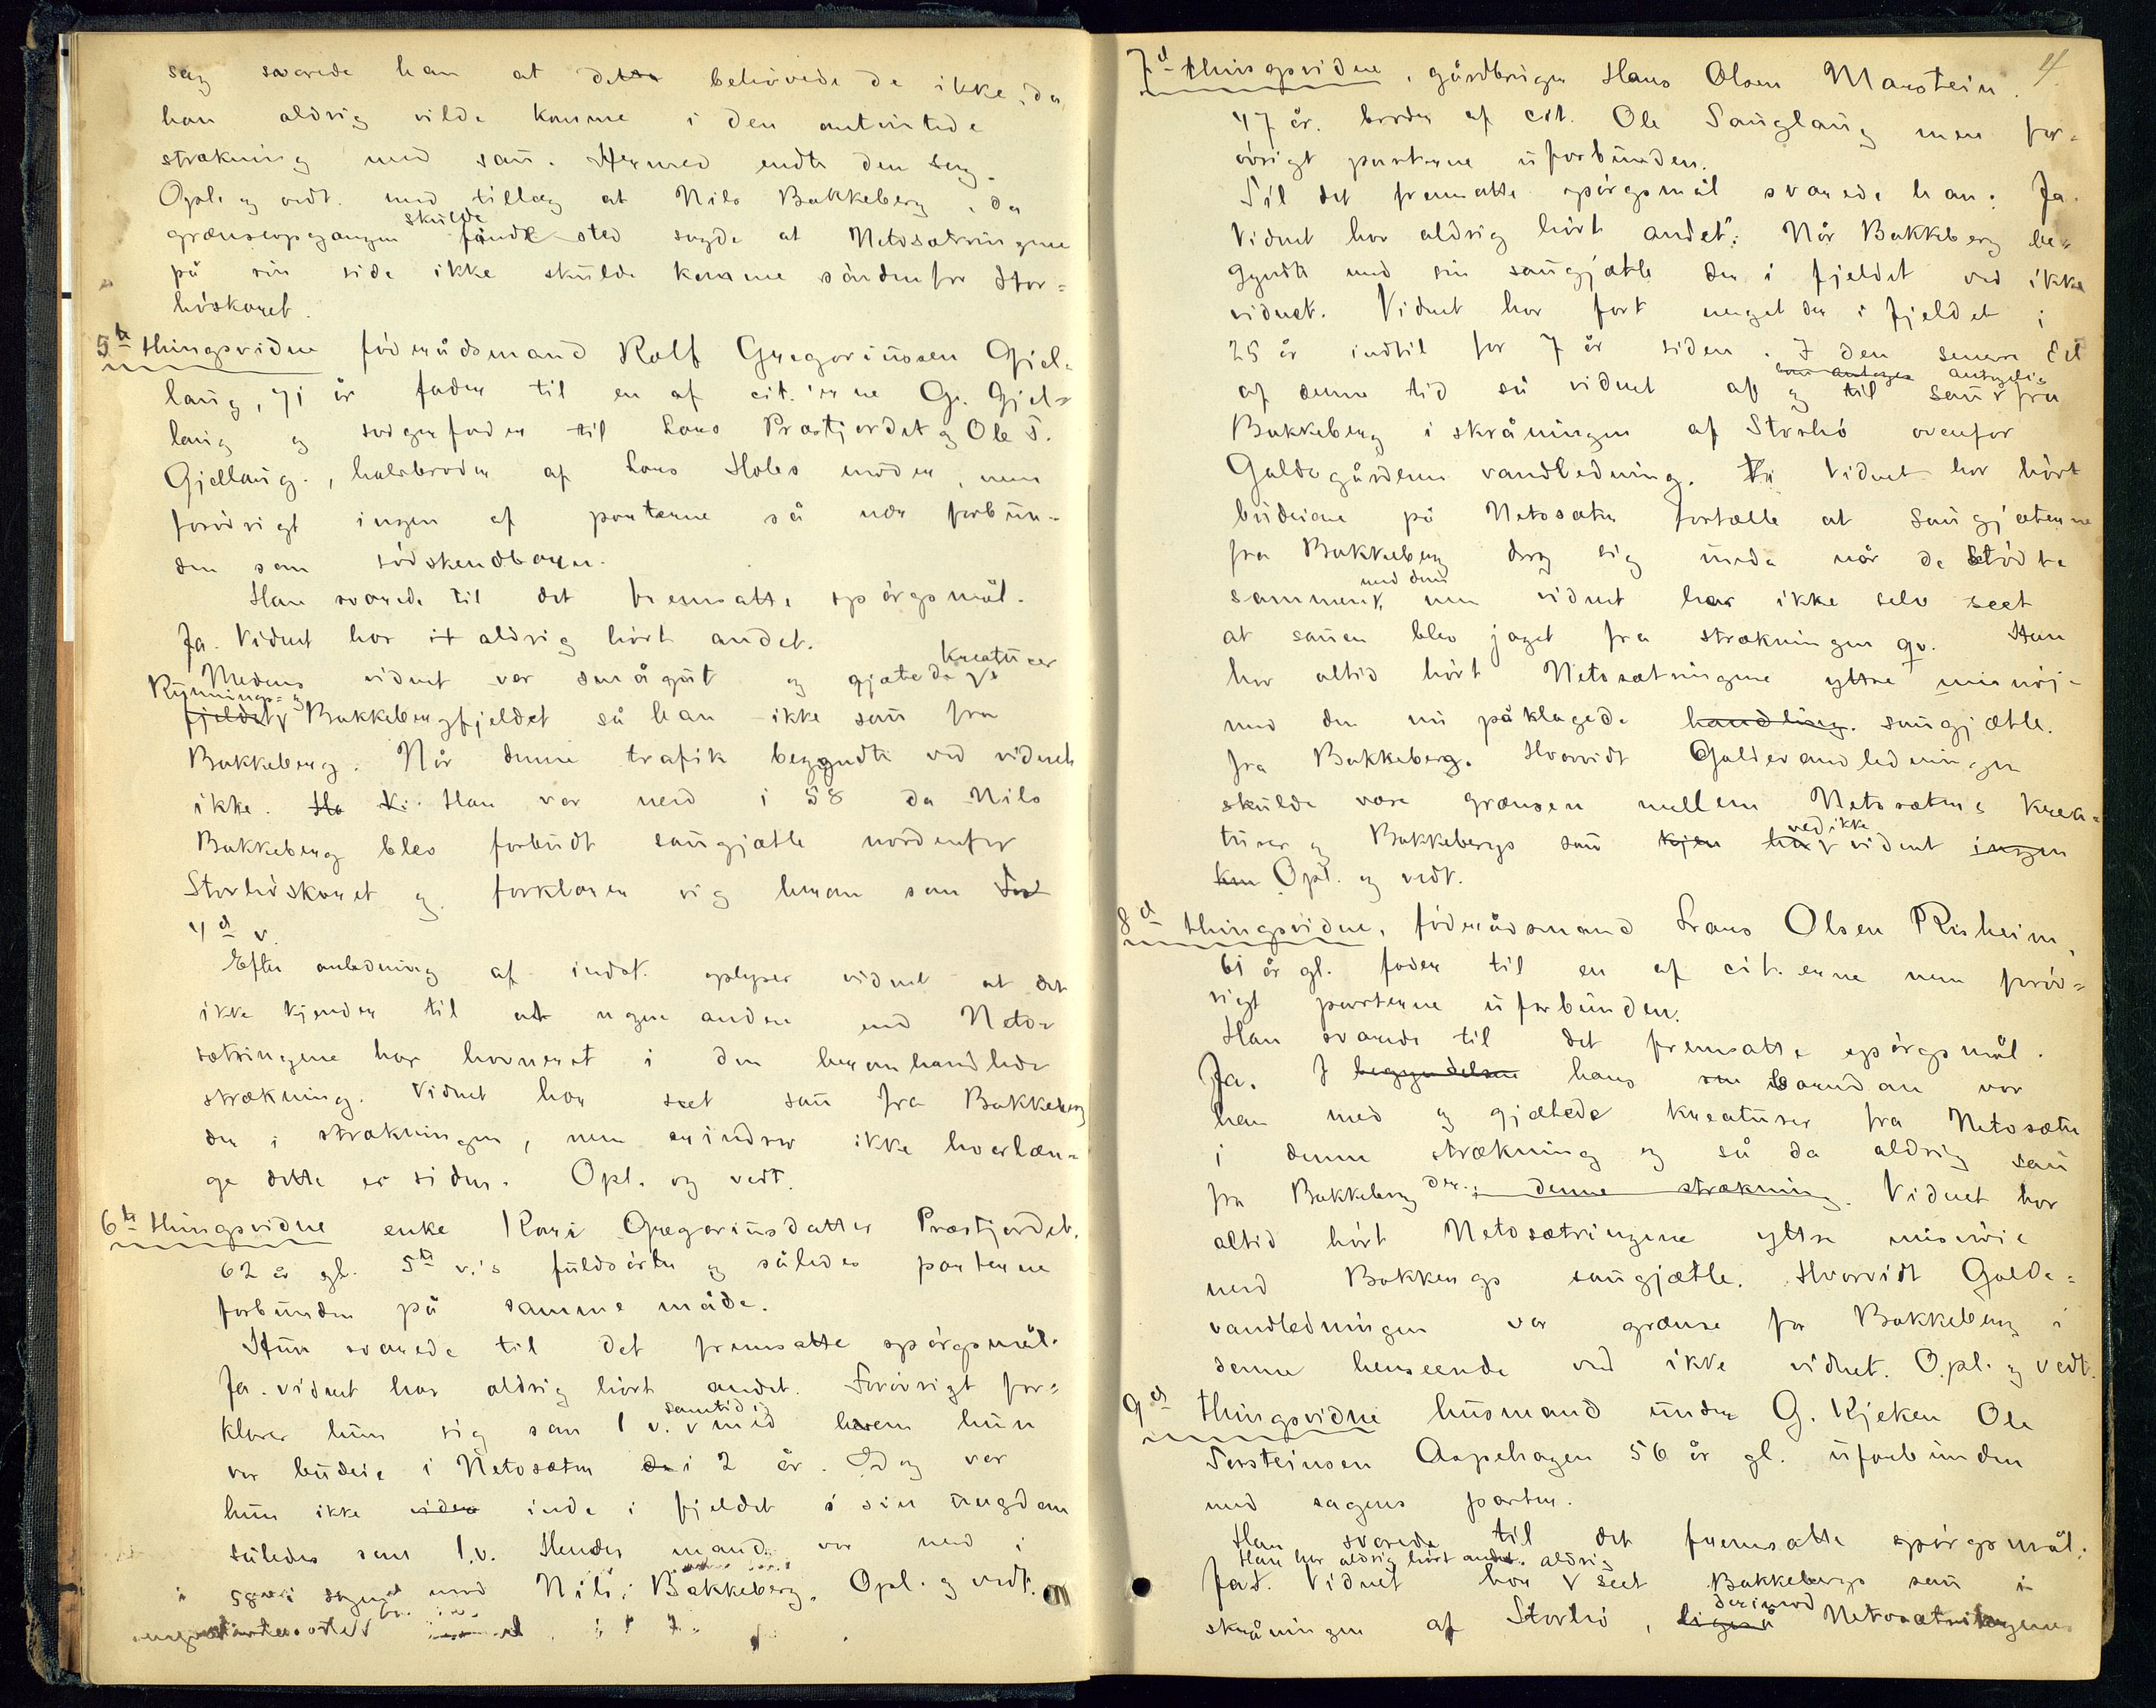 sag svarede han at dette behövede de ikke, da
han aldrig vilde komme i den omtvistede
strækning med sau. Hermed endte den sag.
Opl. og vedt. med tillæg at Nils Bakkeberg, da
grænseopgangen skulde finde sted sagde at Netosætringene
på sin side ikke skulde komme söndenfor Stor=
höskaret.
5te thingsvidne föderådsmand Rolf Gregoriussen Gjel=
laug, 71 år fader til en af cit.'erne G. Gjel=
laug og svigerfader til Lars Præstjordet og Ole T.
Gjellaug, halvbroder af Lars Holes moder, men
forövrigt ingen af parterne så nær forbun=
den som södskendbarn.
Han svarede til det fremsatte spörgsmål.
Ja. Vidnet har it aldrig hört andet.
Medens vidnet var smågut og gjætede kreaturer
i Rynnings= og
fjeldet Bakkebergfjeldet så han ikke sau fra
Bakkeberg. Når denne trafik begyndte ved vidnet
ikke. Ha V. Han var med i 58 da Nils
Bakkeberg blev forbudt saugjætle nordenfor
Storhöskaret og forklarer sig herom som
4de v.
Efter anledning af indst. oplyser vidnet at det
ikke kjender til at nogen anden end Neto=
sætringene har havneret i den heromhandlede
strækning. Vidnet har seet sau fra Bakkeberg
der i strækningen, men erindrer ikke hvorlæn=
ge dette er siden. Opl. og vedt.
6te thingsvidne enke Kari Gregoriusdatter Præstjordet,
62 år gl. 5te v.'s fuldsöster og således parterne
forbunden på samme måde.
Hun svarede til det fremsatte spörgsmål.
Ja. vidnet har aldrig hört andet. Forövrigt for=
klarer hun sig som 1 v. samtidig med hvem hun
var budeie i Netosæter i 2 år. Dog var
hun ikke inde i fjeldet i sin ungdom
således som 1.v. Hendes mand var med i
Nils Bakkeberg. Opl. og vedt.
4
7de thingsvidne, gårdbruger Hans Olsen Marstein.
47 år. broder af cit. Ole Sauglaug men for=
övrigt parterne uforbunden.
Til det fremsatte spörgsmål svarede han: Ja.
Vidnet har aldrig hört andet. Når Bakkeberg be=
gyndte med sin saugjætle der i fjeldet ved ikke
vidnet. Vidnet har fart meget der i fjeldet i
25 år indtil for 7 år siden. I den senere del
af denne tid så vidnet af og til som antages antagelig sau fra
Bakkeberg i skråningen af Storhö ovenfor
Galdegårdenes vandledning. Vidnet har hört
budeiene på Netosæter fortælle at saugjæterne
fra Bakkeberg drog sig unda når de stödte
sammen med dem, men vidnet har ikke selv seet
at sauen blev jaget fra strækningen qv. Han
har altid hört Netosætringene yttre misnöi=
med den nu påklagede handling. saugjætle.
fra Bakkeberg. Hvorvidt Galdevandledningen
skulde være grænsen mellem Netosæters krea=
turer og Bakkebergs sau kjen har ved ikke vidnet ingen
Opl. og vedt.
8de thingsvidne, föderådsmand Hans Olsen Risheim,
61 år gl. fader til en af cit.erne men foröv=
rigt parterne uforbunden.
Han svarede til det fremsatte spörgsmål.
Ja. I begyndelsen hans barndom var
han med og gjætede kreaturer fra Netosæter
i denne strækning og så da aldrig sau
fra Bakkeberg der. i denne strækning. Vidnet har
altid hört Netosætringene yttre misnöie
med Bakkebergs saugjætle. Hvorvidt Galde=
vandledningen var grænse for Bakkeberg i
denne henseende ved ikke vidnet. Opl. og vedt.
9de thingsvidne husmand under G. Kjeken Ole
Torsteinsen Aspehagen 56 år gl. uforbunden
med sagens parter.
Han svarede til det fremsatte spörgsmål:
Ja. Han har aldrig hört andet. Vidnet har aldrig seet Bakkebergs sau i
skråningen af Storhö, ligeså derimod Netosætringenes